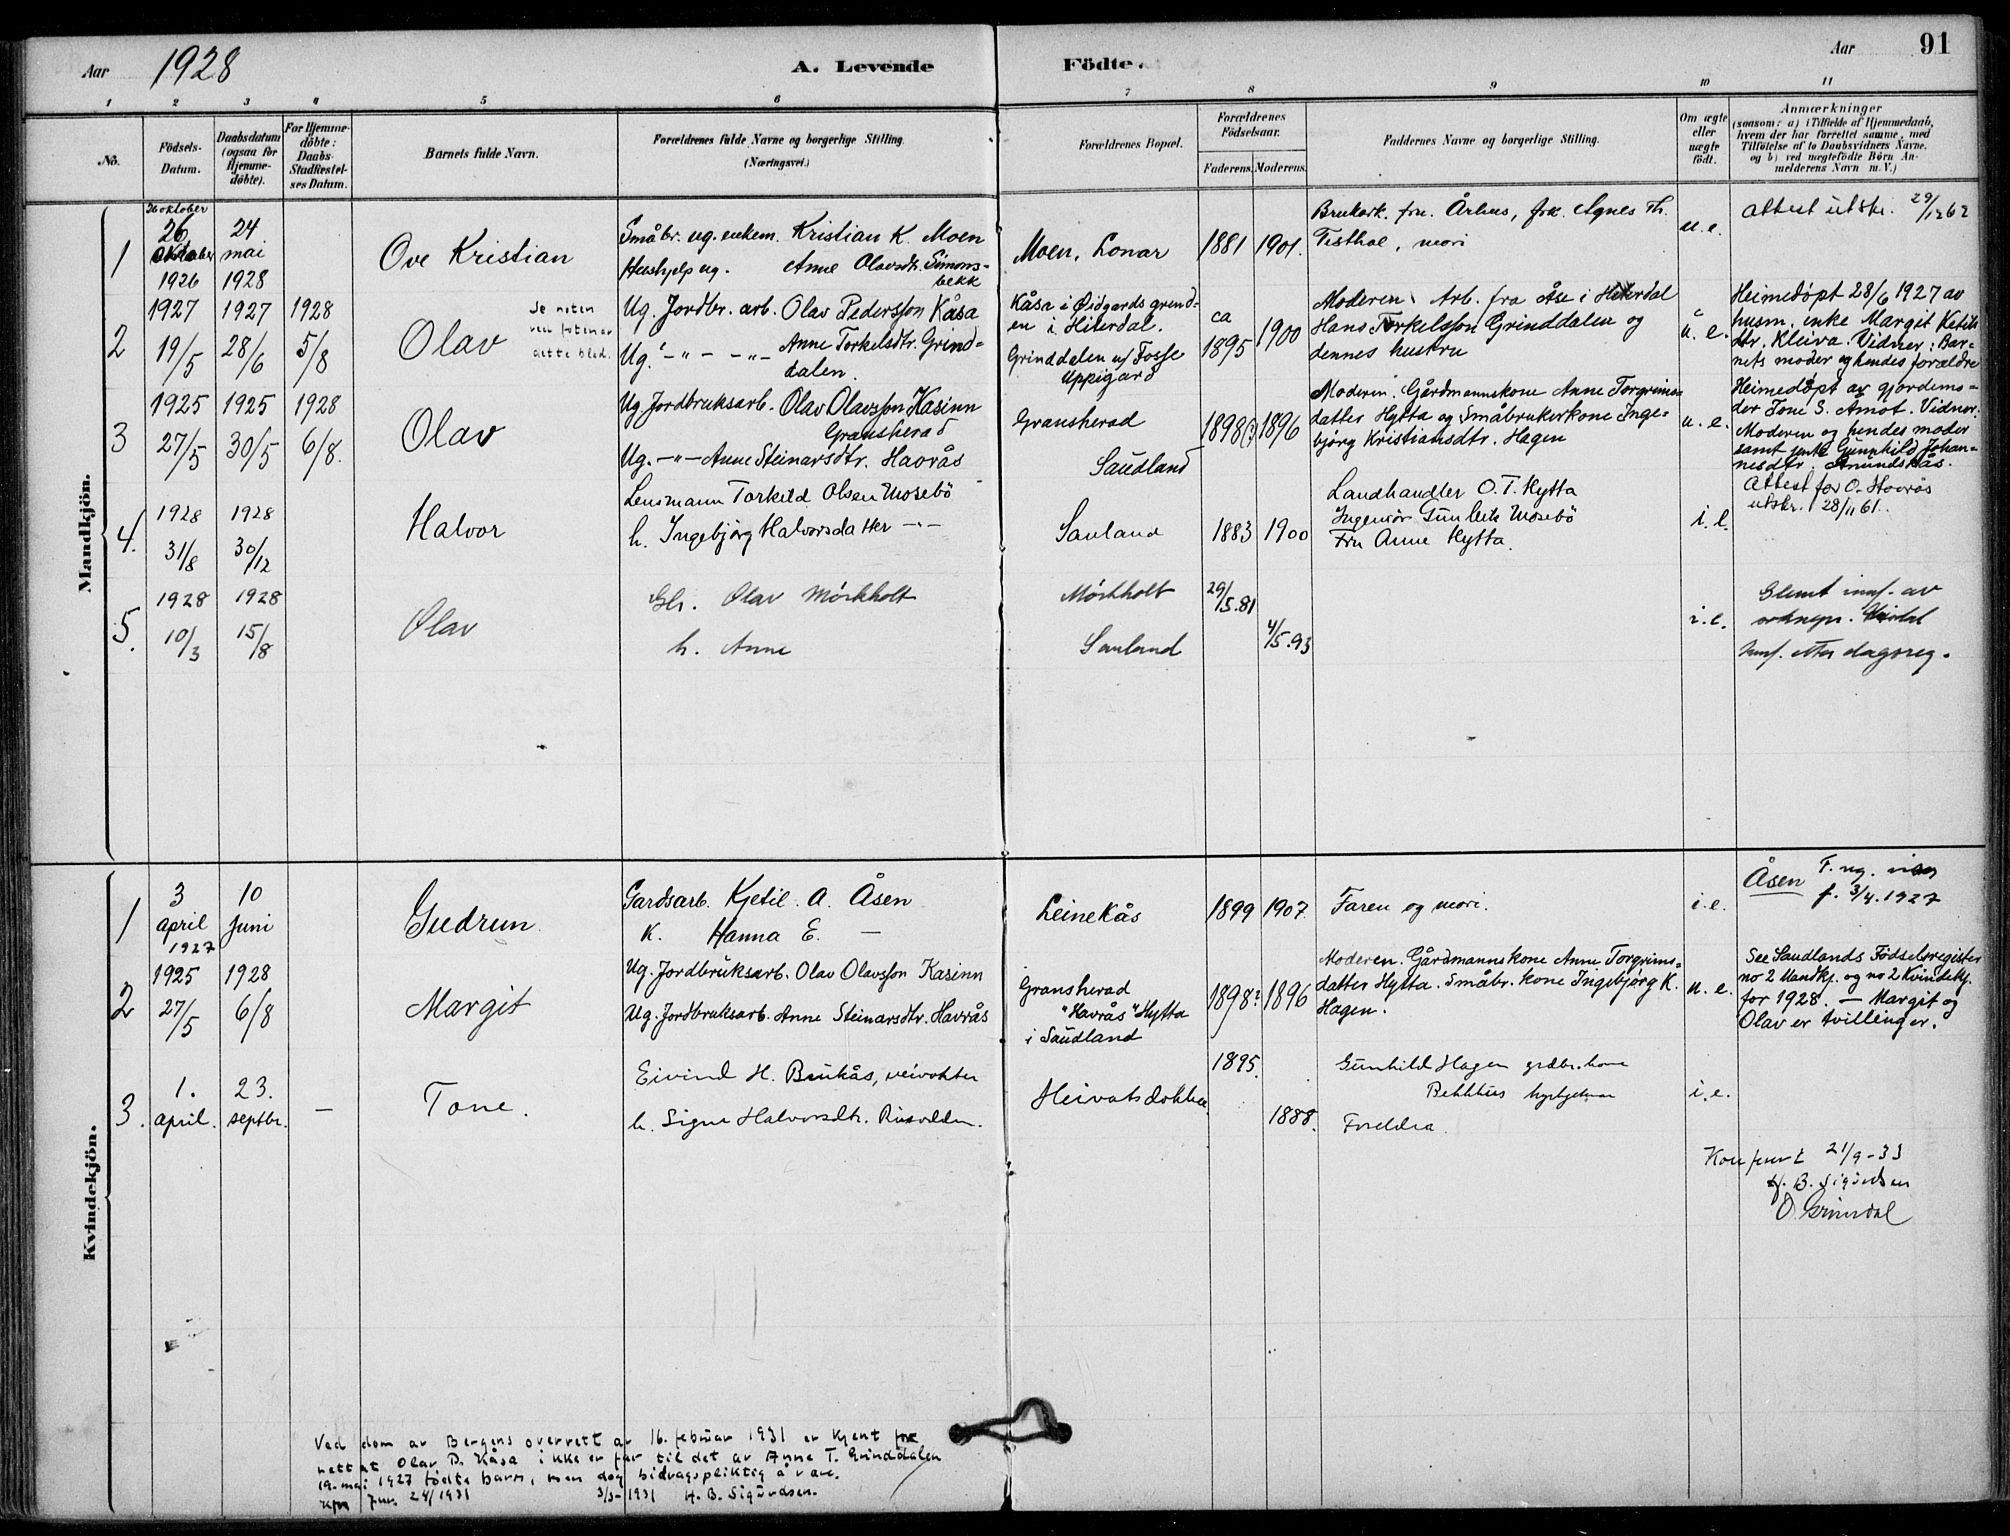 Aar 1928
A. Levende
Födte.
Aar
91
1 2 3 4 5 6 7 8 9 10 11
No.
Födsels-
Datum.
Daabsdatum
(ogsaa for
Hjemme-
döbte).
For Hjemme-
döbte:
Daabs-
Stadfæstel-
ses Datum.
Barnets fulde Navn.
Forældrenes fulde Navne og borgerlige Stilling.
(Næringsvei.)
Forældrenes Bopæl.
Forældrenes
Födselsaar.
Faderens. Moderens.
Faddernes Navne og borgerlige Stilling.
Om ægte
eller
uægte
födt.
Anmærkninger
(saasom: a) i Tilfælde af Hjemmedaab,
hvem der har forrettet samme, med
Tilföielse af to Daabsvidners Navne,
og b) ved uægtefödte Börn An-
melderens Navn m. V.)
Mandkjön.
1
26 oktober
26
oktober
1926
24
mai
1928
Ove Kristian
Småbr. ug. enkem. Kristian K. Moen
Hushjelp ug. Anne Olavsdtr. Simons-
bekk
Moen, Lonar
1881
1901.
Brukark. fru. Århus, frk. Agnes Th.
Tisthol, mori
u.e.
Attest utskr. 29/12 62
2
1927
19/5
1927
28/6
1928
5/8
Olav
Se noten
ved foten av
dette blad.
Ug. Jordbr. arb. Olav Pedersson Kåsa
Ug. -"- -"- Anne Torkelsdtr. Grind-
dalen.
Kåsa i Øidgards grend-
en i Hiterdal.
Grinddalen u/ Fosse
Uppigard
ca
1895
1900
Moderen. Arb. fra Åse i Hiterdal
Hans Torkelsson Grinddalen og
dennes hustru
u. e.
Heimedöpt 28/6 1927 av
husm. enke Margit Ketils
dtr. Kleiva. Vidner: Bar-
nets moder og hendes forældre
3
1925
27/5
1925
30/5
1928
6/8.
Olav
Ug. Jordbruksarb. Olav Olavsson Kasinn
Gransherad
Ug. -"- Anne Steinarsdtr. Havrås
Gransherad
Saudland
1898(?)
1896
Moderen. Gårdmannskone Anne Torgrims-
datter Hytta og Småbrukerkone Inge-
björg Kristiansdtr. Hagen
u. e.
Heimedöpt av gjordemo-
der Tone S. Åmot. Vidner:
Moderen og hendes moder
samt enke Gunhild Johan-
nesdtr. Åmundskås.
Attest for O. Havrås
utskr. 28/11 61.
4.
1928
31/8
1928
30/12
Halvor
Lensmann Torkild Olsen Mosebö
h. Ingebjörg Halvorsdatter -"-
Sauland
1883
1900
Landhandler O. T. Hytta
Ingeniör Gunleik Mosebö
Fru Anne Hytta.
i. e.
5.
1928
10/3
1928
15/8
Olav
Gbr. Olav Mörkholt
h. Anne
Mörkholt
Sauland
29/5.81
4/5.93
i. e.
Glemt innf. av
soknepr.
Innf. etter dagsreg.
Kvindekjön.
1
3
april
1927
10
Juni
Gudrun
Gardsarb. Kjetil A. Åsen
K. Hanna E. —
Leinekås
1899
1907.
Faren og mori.
i.e.
Åsen
f. 3/4.1927
2
1925
27/5
1928
6/8
Margit
Ug. Jordbruksarb. Olav Olavsson Kasinn
Ug. Jordbruksarb. Anne Steinarsdtr. Havrås
Gransherad
"Havrås" Hytta
i Saudland
1898?
1896
Moderen. Gårdmannskone Anne Torgrims-
datter Hytta. Småbr. kone Ingebjörg K.
Hagen.
u. e.
See Saudlands Födselsregister
no 2 Mandkj. og no 2 Kvindekj.
for 1928. — Margit og
Olav er tvillinger.
3.
1.
april.
23.
septbr.
—
Tone.
Eivind H. Bukås, veivokter
h. Signe Halvorsdtr. Risvolden.
Heivatsdokka
1895.
1888.
Gunhild Hagen grdbr. kone
Bekkhus
Foreldra.
i. e.
Konferert 21/9-33
H. B. Sigurdsen
O Grimdal
Ved dom av Bergens overrett av 16. februar 1931 er kjent for
rett at Olav P. Kåsa ikke er far til det av Anne T. Grinddalen
19. mai 1927 födte barn, men dog bidragspliktig å være.
3/3-1931 H. B. Sigurdsen.